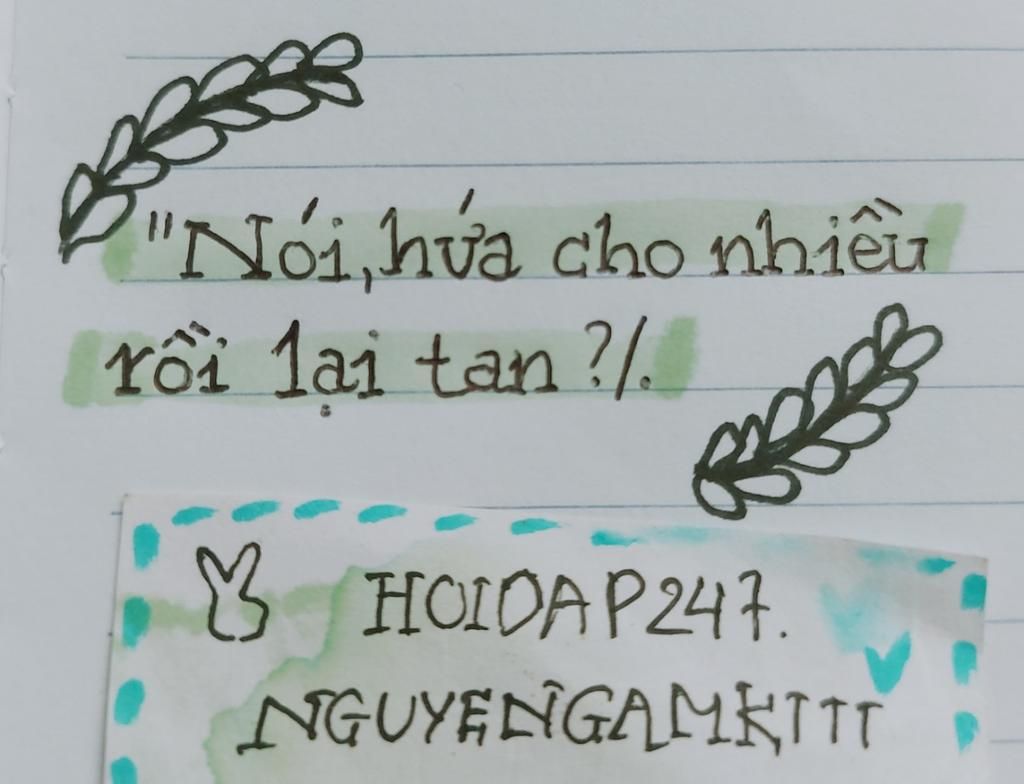 "Nói, hứa cho nhiều
rồi lại tan ?/.
HOIDAP247.
NGUYENGAMKTTT